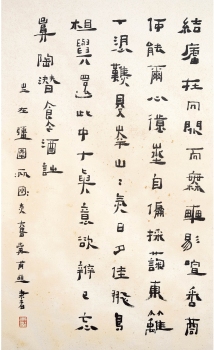 結廬在人境而無車馬喧問君
何能爾心遠地自偏採菊東籬
下悠然見南山山氣日夕佳飛鳥
相與還此中有真意欲辨已忘
言陶潛飲酒詩